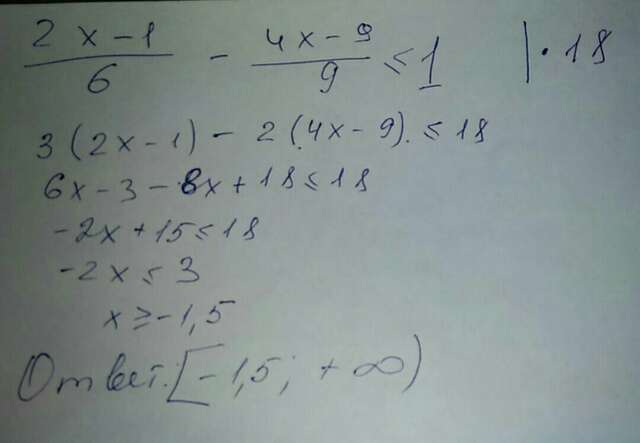 (2x-1)/6 - (4x-9)/9 ≤ 1 | · 18
3(2x-1) - 2(4x-9) ≤ 18
6x-3-8x+18≤18
-2x+15≤18
-2x≤3
x≥-1,5
Ответ: [-1,5; +∞)